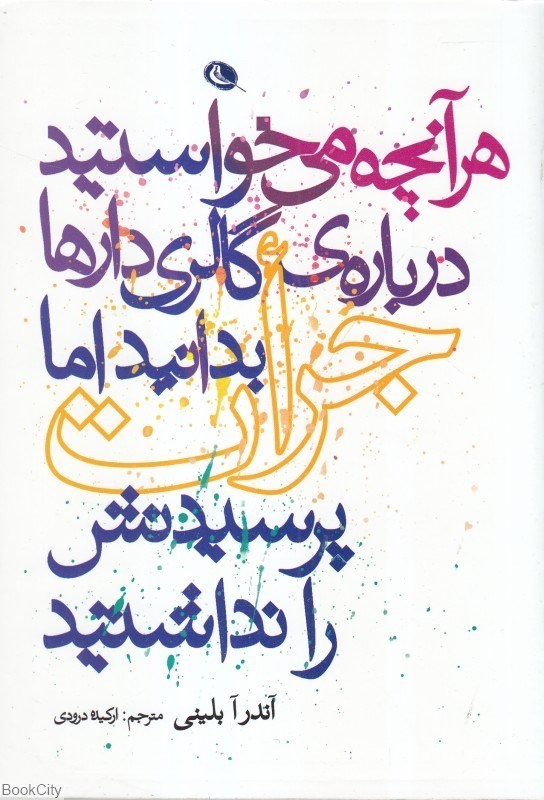 هر آنچه می‌خواستید
درباره‌ی گالری‌دارها
بدانید اما
جرأت
پرسیدنش
را نداشتید
آندرآ بلینی مترجم: ارکیده درودی
BookCity